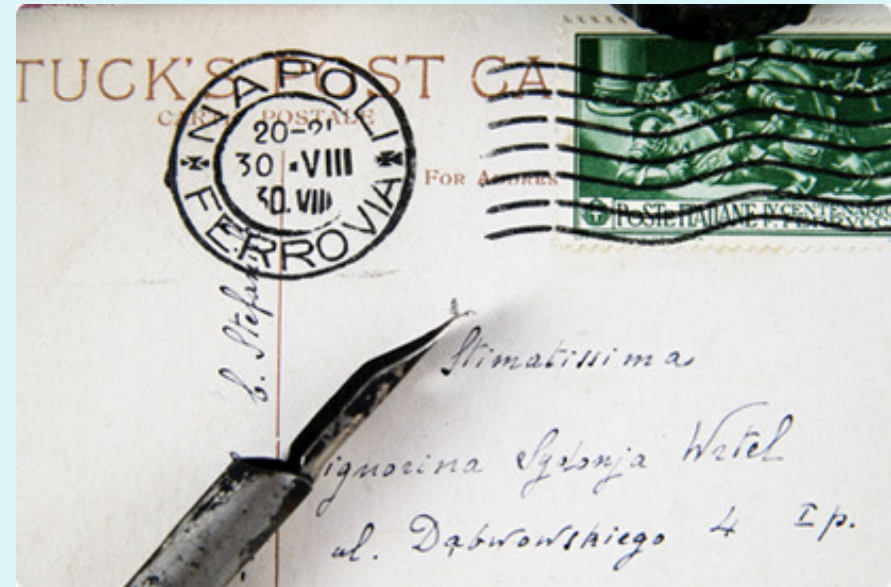 TUCK'S POST CA
CARTE POSTALE
NAPOLI
20-21
30 ·VIII
30.VIII
FERROVIA
FOR ADDRES
POSTE ITALIANE IV CENTENARIO
Stimatissima
ignorina Sydonja Wrtel
ul. Dąbrowskiego 4 I p.